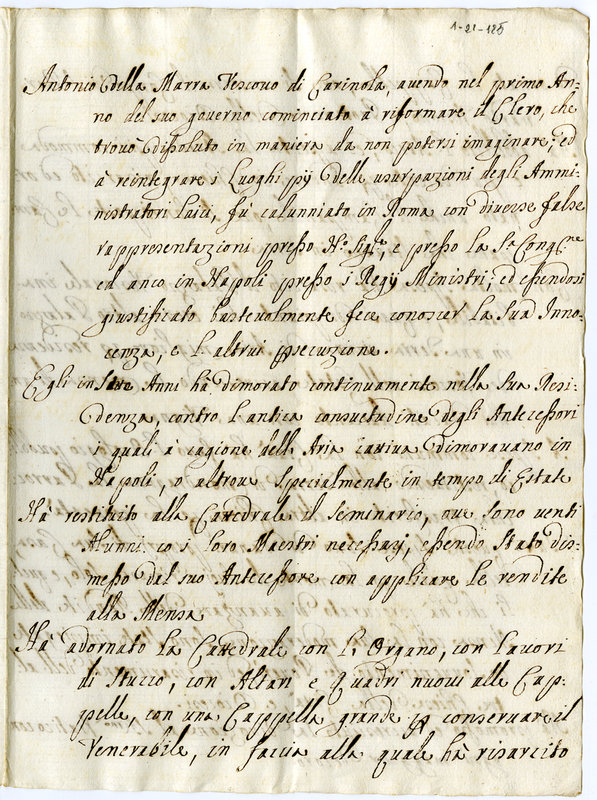 1-21-128
Antonio Della Marra Vescovo di Carinola, avendo nel primo An=
no del suo governo cominciato à riformare il Clero, che
trovò dissoluto in maniera da non potersi imaginare, ed
à reintegrare i Luoghi pij delle usurpazioni degli Ammi=
nistratori Laici, fù calunniato in Roma con diverse false
rappresentazioni presso N.o Sig.re, e presso la S.a Cong.ne
ed anco in Napoli presso i Regij Ministri, ed essendosi
giustificato bastevolmente fece conoscer la sua Inno=
cenza, e l'altrui psecuzione.
Egli in Anni hà dimorato continuamente nella sua Resi=
denza, contro l'antica consuetudine degli Antecessori
i quali à cagione dell'Aria cattiva dimoravano in
Napoli, o altrove specialmente in tempo di Estate
Hà restituito alla Cattedrale il seminario, ove sono venti
Alunni co i loro Maestri necessarj, essendo stato dis=
messo dal suo Antecessore con applicare le rendite
alla Mensa
Hà adornato la Cattedrale con l'Organo, con lavori
di stucco, con Altari e Quadri nuovi alle Cap=
pelle, con una Cappella grande p conservare il
Venerabile, in faccia alla quale hà risarcito